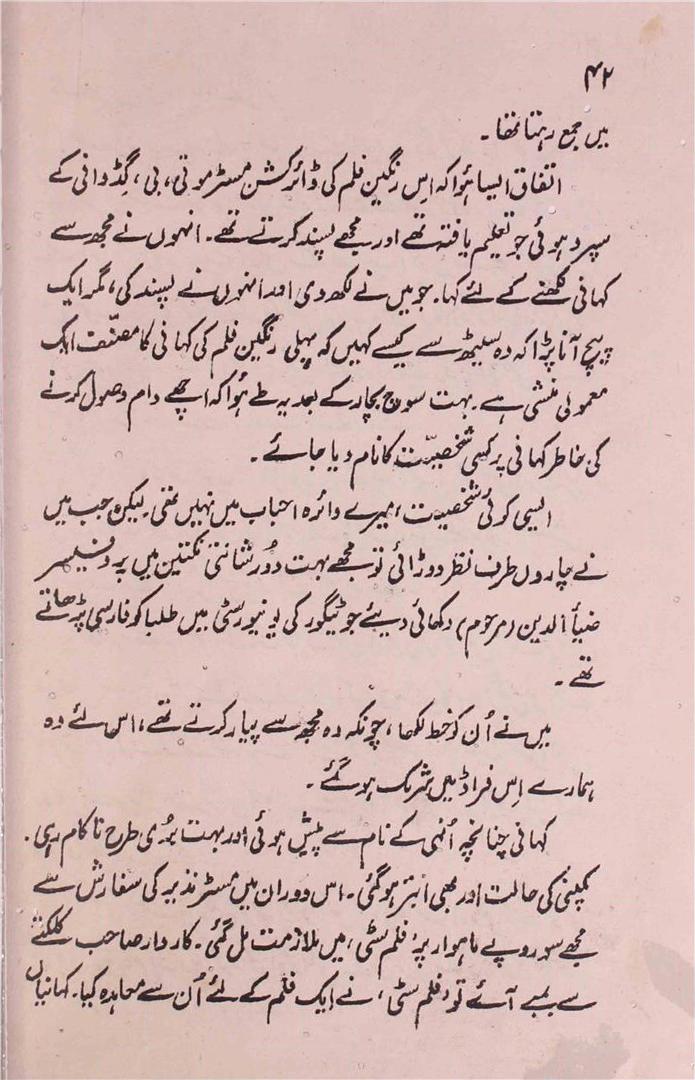 ۴۲
میں جمع رہتا تھا۔
اتفاق ایسا ہوا کہ اِس رنگین فلم کی ڈائرکشن مسٹر موتی، بی، گِڈوانی کے
سپرد ہوئی جو تعلیم یافتہ تھے اور مجھے پسند کرتے تھے۔ انہوں نے مجھ سے
کہانی لکھنے کے لئے کہا۔ جو میں نے لکھ دی اور انہوں نے پسند کی، مگر ایک
پیچ آن پڑا کہ وہ سیٹھ سے کیسے کہیں کہ پہلی رنگین فلم کی کہانی کا مصنّف ایک
معمولی منشی ہے۔ بہت سوچ بچار کے بعد یہ طے ہُوا کہ اچھے دام وصول کرنے
کی خاطر کہانی پر کسی شخصیّت کا نام دیا جائے۔
ایسی کوئی شخصیت، میرے دائرہ احباب میں نہیں تھی۔ لیکن جب میں
نے چاروں طرف نظر دوڑائی تو مجھے بہت دُور شانتی نکتین میں پروفیسر
ضیأ الدین (مرحوم) دکھائی دیئے جو ٹیگور کی یونیورسٹی میں طلبا کو فارسی پڑھاتے
تھے۔
میں نے اُن کو خط لکھا، چونکہ وہ مجھ سے پیار کرتے تھے، اس لئے وہ
ہمارے اِس فراڈ میں شریک ہو گئے۔
کہانی چنانچہ اُنہی کے نام سے پیش ہوئی اور بہت بُری طرح ناکام رہی۔
کمپنی کی حالت اور بھی ابتر ہو گئی۔ اس دوران میں مسٹر نذیر کی سفارش سے
مجھے سو روپے ماہوار پر ’فلم سٹی‘ میں ملازمت مل گئی۔ کاردار صاحب کلکتے
سے بمبے آئے تو ’فلم سٹی‘ نے ایک فلم کے لئے اُن سے معاہدہ کیا۔ کہانیاں